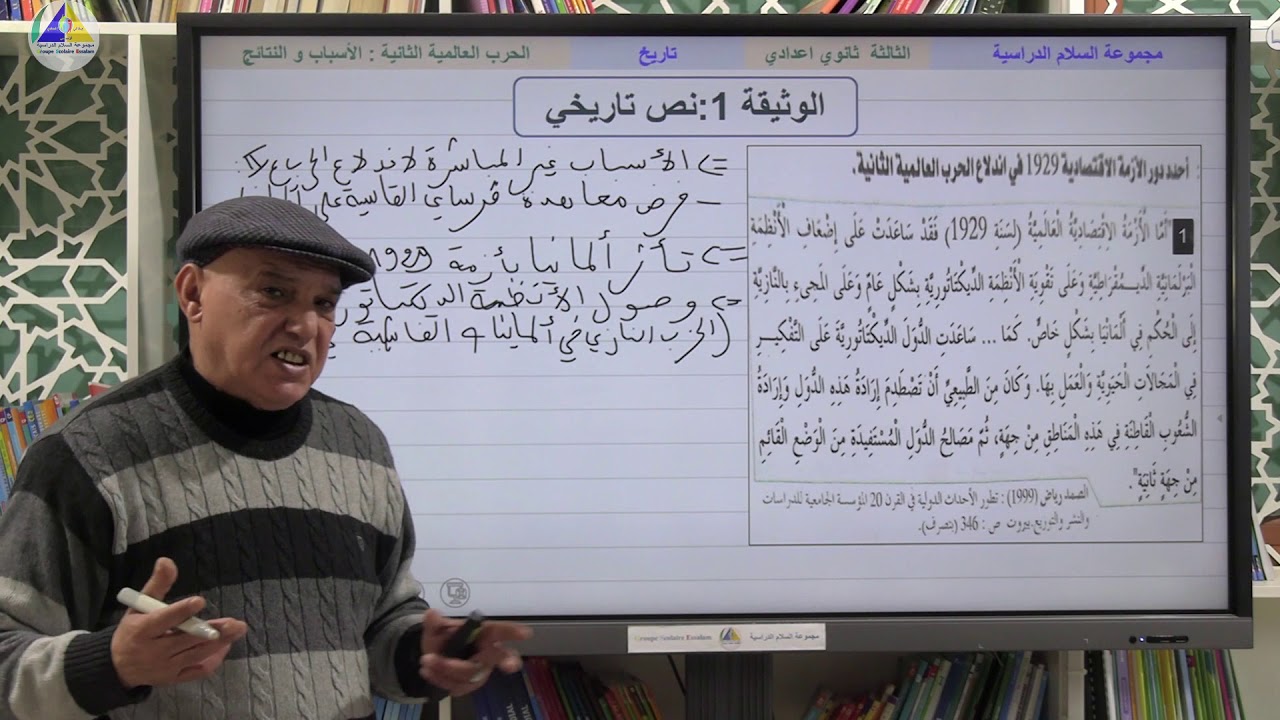 مجموعة السلام الدراسية
Groupe Scolaire Essalam
مجموعة السلام الدراسية
الثالثة ثانوي اعدادي
تاريخ
الحرب العالمية الثانية : الأسباب و النتائج
الوثيقة 1:نص تاريخي
أحدد دور الأزمة الاقتصادية 1929 في اندلاع الحرب العالمية الثانية.
1
"أَمَّا الْأَزْمَةُ الِاقْتِصَادِيَّةُ الْعَالَمِيَّةُ (لسَنَة 1929) فَقَدْ سَاعَدَتْ عَلَى إِضْعَافِ الْأَنْظِمَةِ
البَرْلَمَانِيَّةِ الدِّيمُقْرَاطِيَّةِ وَعَلَى تَقْوِيَةِ الْأَنْظِمَةِ الدِّيكْتَاتُورِيَّةِ بِشَكْلٍ عَامٍّ وَعَلَى الْمَجِيءِ بِالنَّازِيَّةِ
إِلَى الْحُكْمِ فِي أَلْمَانْيَا بِشَكْلٍ خَاصٍّ. كَمَا ... سَاعَدَتِ الدُّوَلَ الدِّيكْتَاتُورِيَّةَ عَلَى التَّفْكِيرِ
فِي الْمَجَالَاتِ الْحَيَوِيَّةِ وَالْعَمَلِ بِهَا. وَكَانَ مِنَ الطَّبِيعِيِّ أَنْ تَصْطَدِمَ إِرَادَةُ هَذِهِ الدُّوَلِ وَإِرَادَةُ
الشُّعُوبِ الْقَاطِنَةِ فِي هَذِهِ الْمَنَاطِقِ مِنْ جِهَةٍ، ثُمَّ مَصَالِحُ الدُّوَلِ الْمُسْتَفِيدَةِ مِنَ الْوَضْعِ الْقَائِمِ
مِنْ جِهَةٍ ثَانِيَةٍ".
الصمد رياض (1999) : تطور الأحداث الدولية في القرن 20 المؤسسة الجامعية للدراسات
والنشر والتوزيع.بيروت ص : 346 (بتصرف).
=> الأسباب غير المباشرة لاندلاع الح ع II
- فرض معاهدة فرساي القاسية على
=> تأثر ألمانيا بأزمة 1929
=> وصول الأنظمة
(الحزب النازي في ألمانيا و الفاشية
Groupe Scolaire Essalam
مجموعة السلام الدراسية